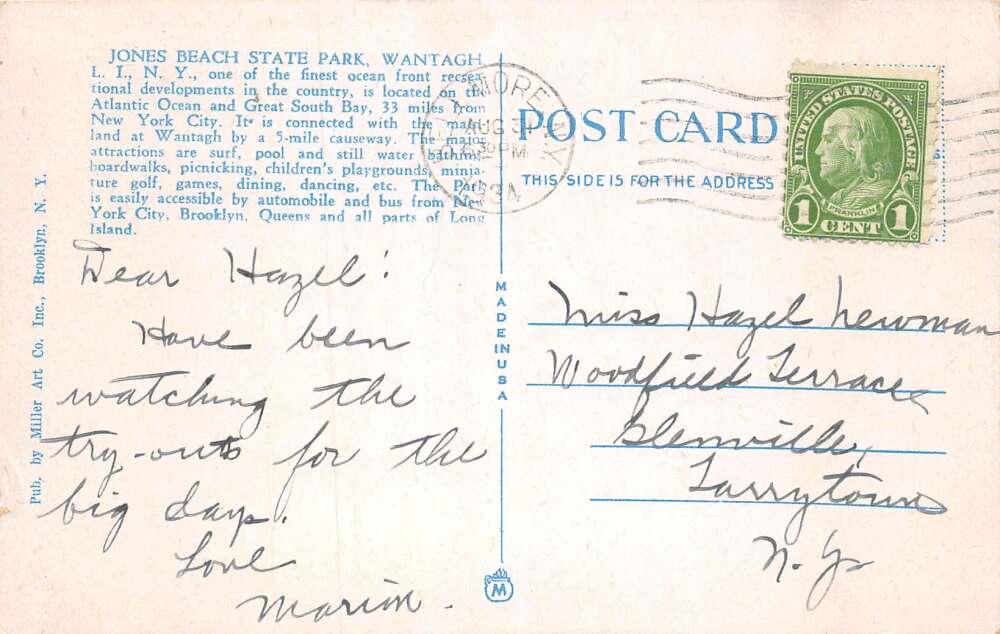 JONES BEACH STATE PARK, WANTAGH
L. I., N. Y., one of the finest ocean front recrea-
tional developments in the country, is located on the
Atlantic Ocean and Great South Bay, 33 miles from
New York City. It is connected with the main-
land at Wantagh by a 5-mile causeway. The major
attractions are surf, pool and still water bathing
boardwalks, picnicking, children's playgrounds, minia-
ture golf, games, dining, dancing, etc. The Park
is easily accessible by automobile and bus from New
York City, Brooklyn, Queens and all parts of Long
Island.
Pub. by Miller Art Co. Inc., Brooklyn, N. Y.
Dear Hazel!
Have been
watching the
try-outs for the
big days.
Love
Marion.
MADE IN USA
M
MORE
AUG 31
30 PM
1934
POST CARD
THIS SIDE IS FOR THE ADDRESS
UNITED STATES POSTAGE
FRANKLIN
1 CENT 1
Miss Hazel Newman
Woodfield Terrace
Glenville,
Tarrytown
N. Y.